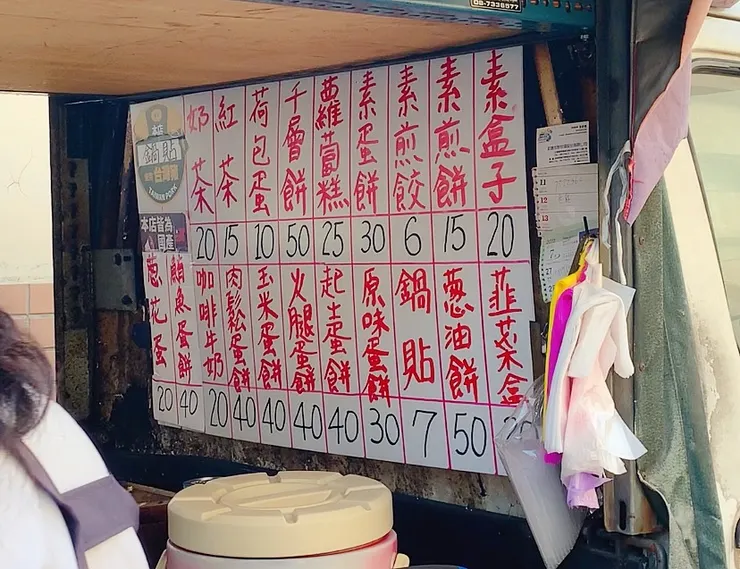 08-7338577
素盒子 20
素煎餅 15
素煎餃 6
素蛋餅 30
蘿蔔糕 25
千層餅 50
荷包蛋 10
紅茶 15
奶茶 20
韮菜盒
蔥油餅 50
鍋貼 7
原味蛋餅 30
起士蛋餅 40
火腿蛋餅 40
玉米蛋餅 40
肉鬆蛋餅 40
咖啡牛奶 20
鮪魚蛋餅 40
蔥花蛋 20
本店
鍋貼
台灣豬
TAIWAN PORK
本店皆為
國產
11
12
13